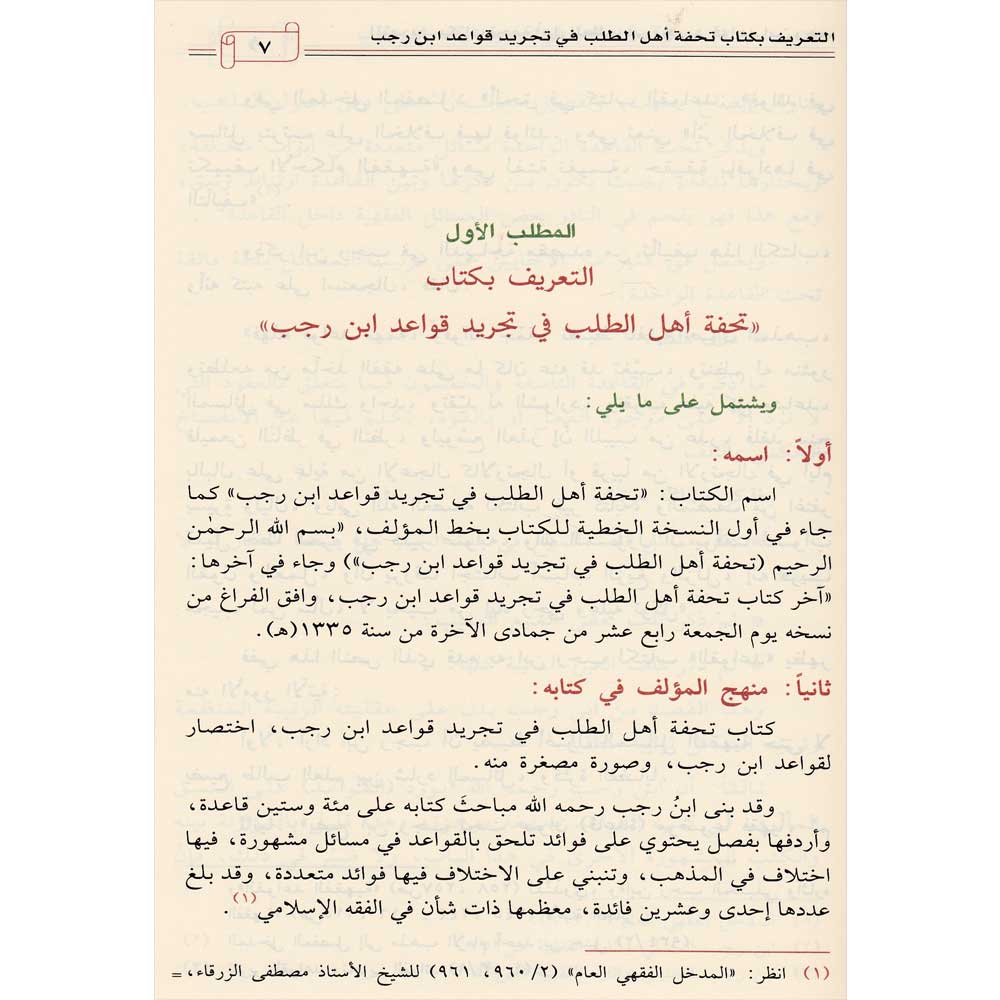 التعريف بكتاب تحفة أهل الطلب في تجريد قواعد ابن رجب
٧
المطلب الأول
التعريف بكتاب
«تحفة أهل الطلب في تجريد قواعد ابن رجب»
ويشتمل على ما يلي:
أولاً: اسمه:
اسم الكتاب: «تحفة أهل الطلب في تجريد قواعد ابن رجب» كما
جاء في أول النسخة الخطية للكتاب بخط المؤلف، «بسم الله الرحمٰن
الرحيم (تحفة أهل الطلب في تجريد قواعد ابن رجب») وجاء في آخرها:
«آخر كتاب تحفة أهل الطلب في تجريد قواعد ابن رجب، وافق الفراغ من
نسخه يوم الجمعة رابع عشر من جمادى الآخرة من سنة ١٣٣٥(هـ).
ثانياً: منهج المؤلف في كتابه:
كتاب تحفة أهل الطلب في تجريد قواعد ابن رجب، اختصار
لقواعد ابن رجب، وصورة مصغرة منه.
وقد بنى ابنُ رجب رحمه الله مباحثَ كتابه على مئة وستين قاعدة،
وأردفها بفصل يحتوي على فوائد تلحق بالقواعد في مسائل مشهورة، فيها
اختلاف في المذهب، وتنبني على الاختلاف فيها فوائد متعددة، وقد بلغ
عددها إحدى وعشرين فائدة، معظمها ذات شأن في الفقه الإسلامي(١).
(١) انظر: «المدخل الفقهي العام» (٢/ ٩٦٠، ٩٦١) للشيخ الأستاذ مصطفى الزرقاء، =